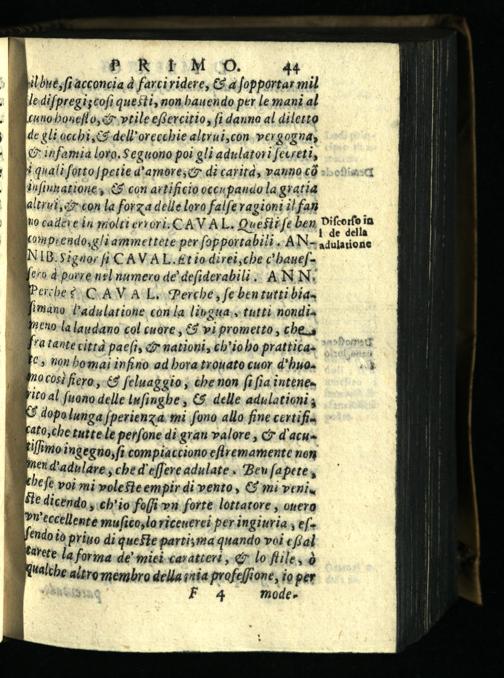 PRIMO. 44
il bue, si acconcia à farci ridere, & à sopportar mil
le dispregi; così questi, non hauendo per le mani al
cuno honesto, & vtile eßercitio, si danno al diletto
de gli occhi, & dell'orecchie altrui, con vergogna,
& infamia loro. Seguono poi gli adulatori secreti,
i quali sotto spetie d'amore, & di carità, vanno cō
insinuatione, & con artificio occupando la gratia
altrui, & con la forza delle loro false ragioni il fan
no cadere in molti errori. CAVAL. Questi se ben
comprendo, gli ammettete per sopportabili. AN-
NIB. Signor sì CAVAL. Et io direi, che c'haues-
sero à porre nel numero de' desiderabili. ANN.
Perche? CAVAL. Perche, se ben tutti bia-
simano l'adulatione con la lingua, tutti nondi-
meno la laudano col cuore, & vi prometto, che
fra tante città paesi, & nationi, ch'io ho prattica-
te, non ho mai infino ad hora trouato cuor d'huo-
mo così fiero, & seluaggio, che non si sia intene-
rito al suono delle lusinghe, & delle adulationi;
& dopo lunga sperienza mi sono allo fine certifi-
cato, che tutte le persone di gran valore, & d'acu-
tissimo ingegno, si compiacciono estremamente non
men d'adulare, che d'essere adulate. Ben sapete,
che se voi mi voleste empir di vento, & mi veni-
ste dicendo, ch'io fossi vn forte lottatore, ouero
vn'eccellente musico, lo riceuerei per ingiuria, es-
sendo io priuo di queste parti; ma quando voi eßal
tarete la forma de' miei caratteri, & lo stile, ò
qualche altro membro della mia professione, io per
F 4 mode-
Discorso in
l de della
adulatione